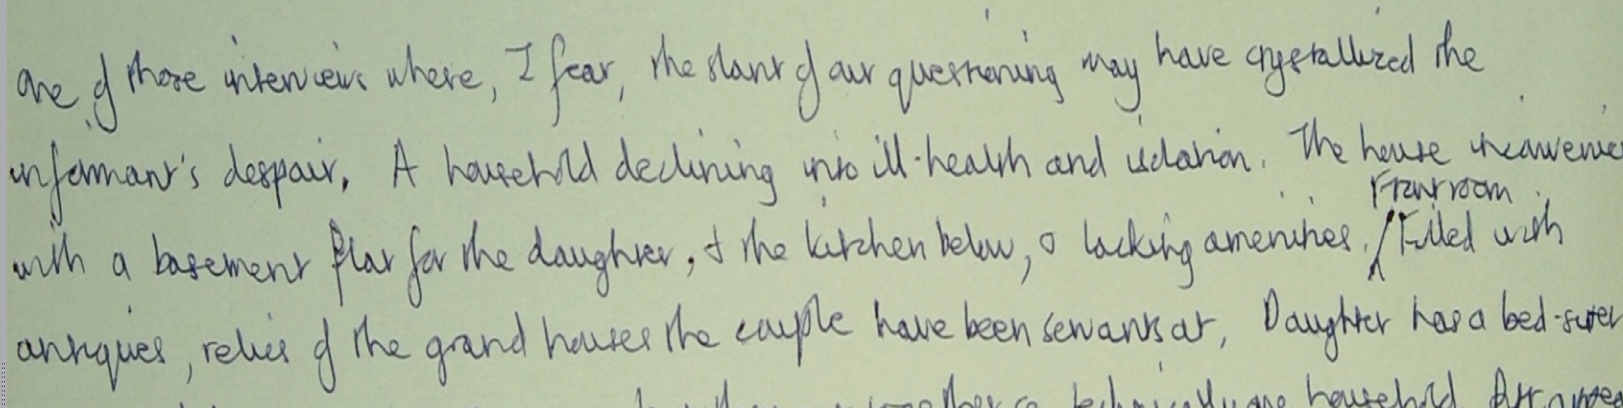 One of those interviews where, I fear, the slant of our questioning may have crystallized the
informant's despair. A household declining into ill-health and isolation. The house
Front room
with a basement flat for the daughter, & the kitchen below, & lacking amenities. / Filled with
antiques, relics of the grand houses the couple have been servants at, Daughter has a bed-sitter
household